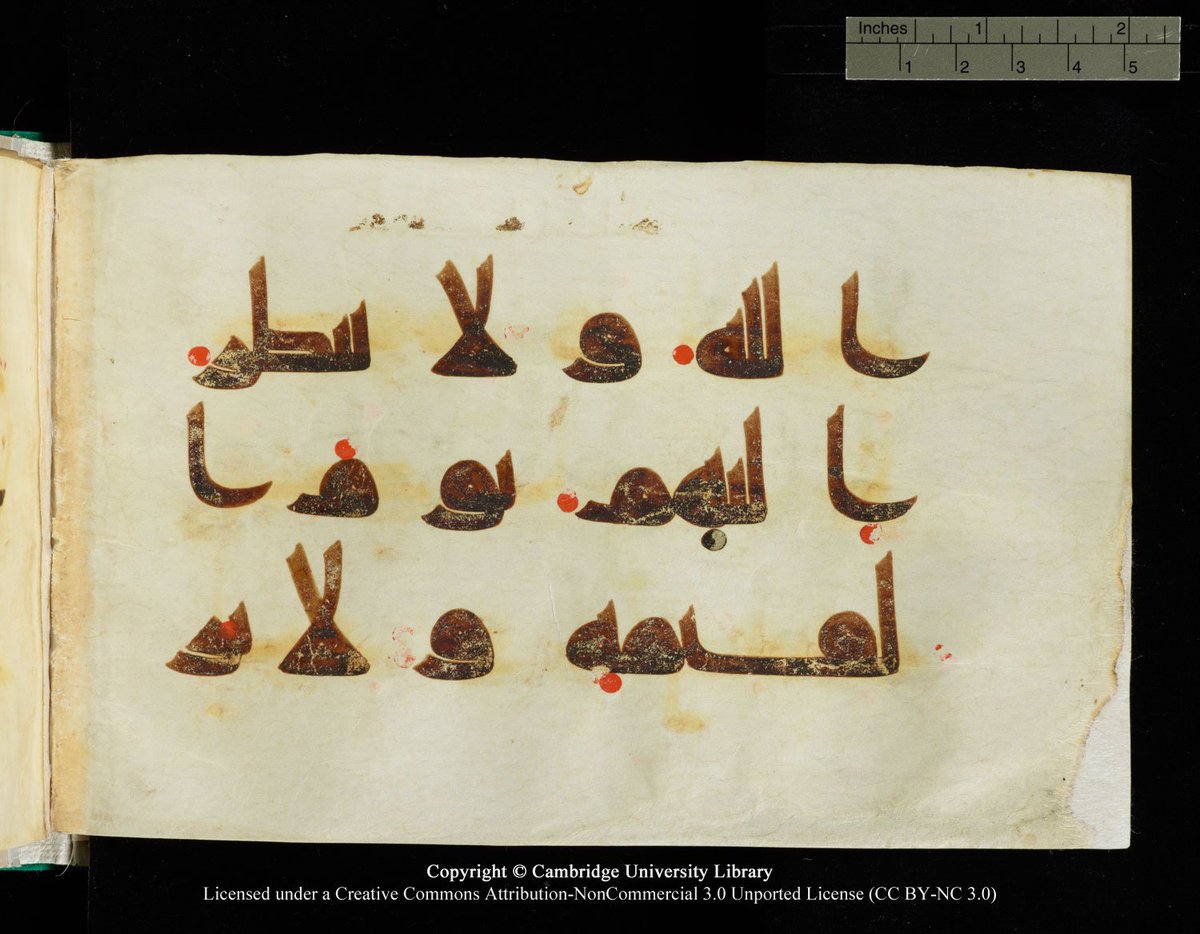 Inches 1 2
1 2 3 4 5
الله ولا ينظر
اليهم يوم ا
لقيمة ولا يز
Copyright © Cambridge University Library
Licensed under a Creative Commons Attribution-NonCommercial 3.0 Unported License (CC BY-NC 3.0)